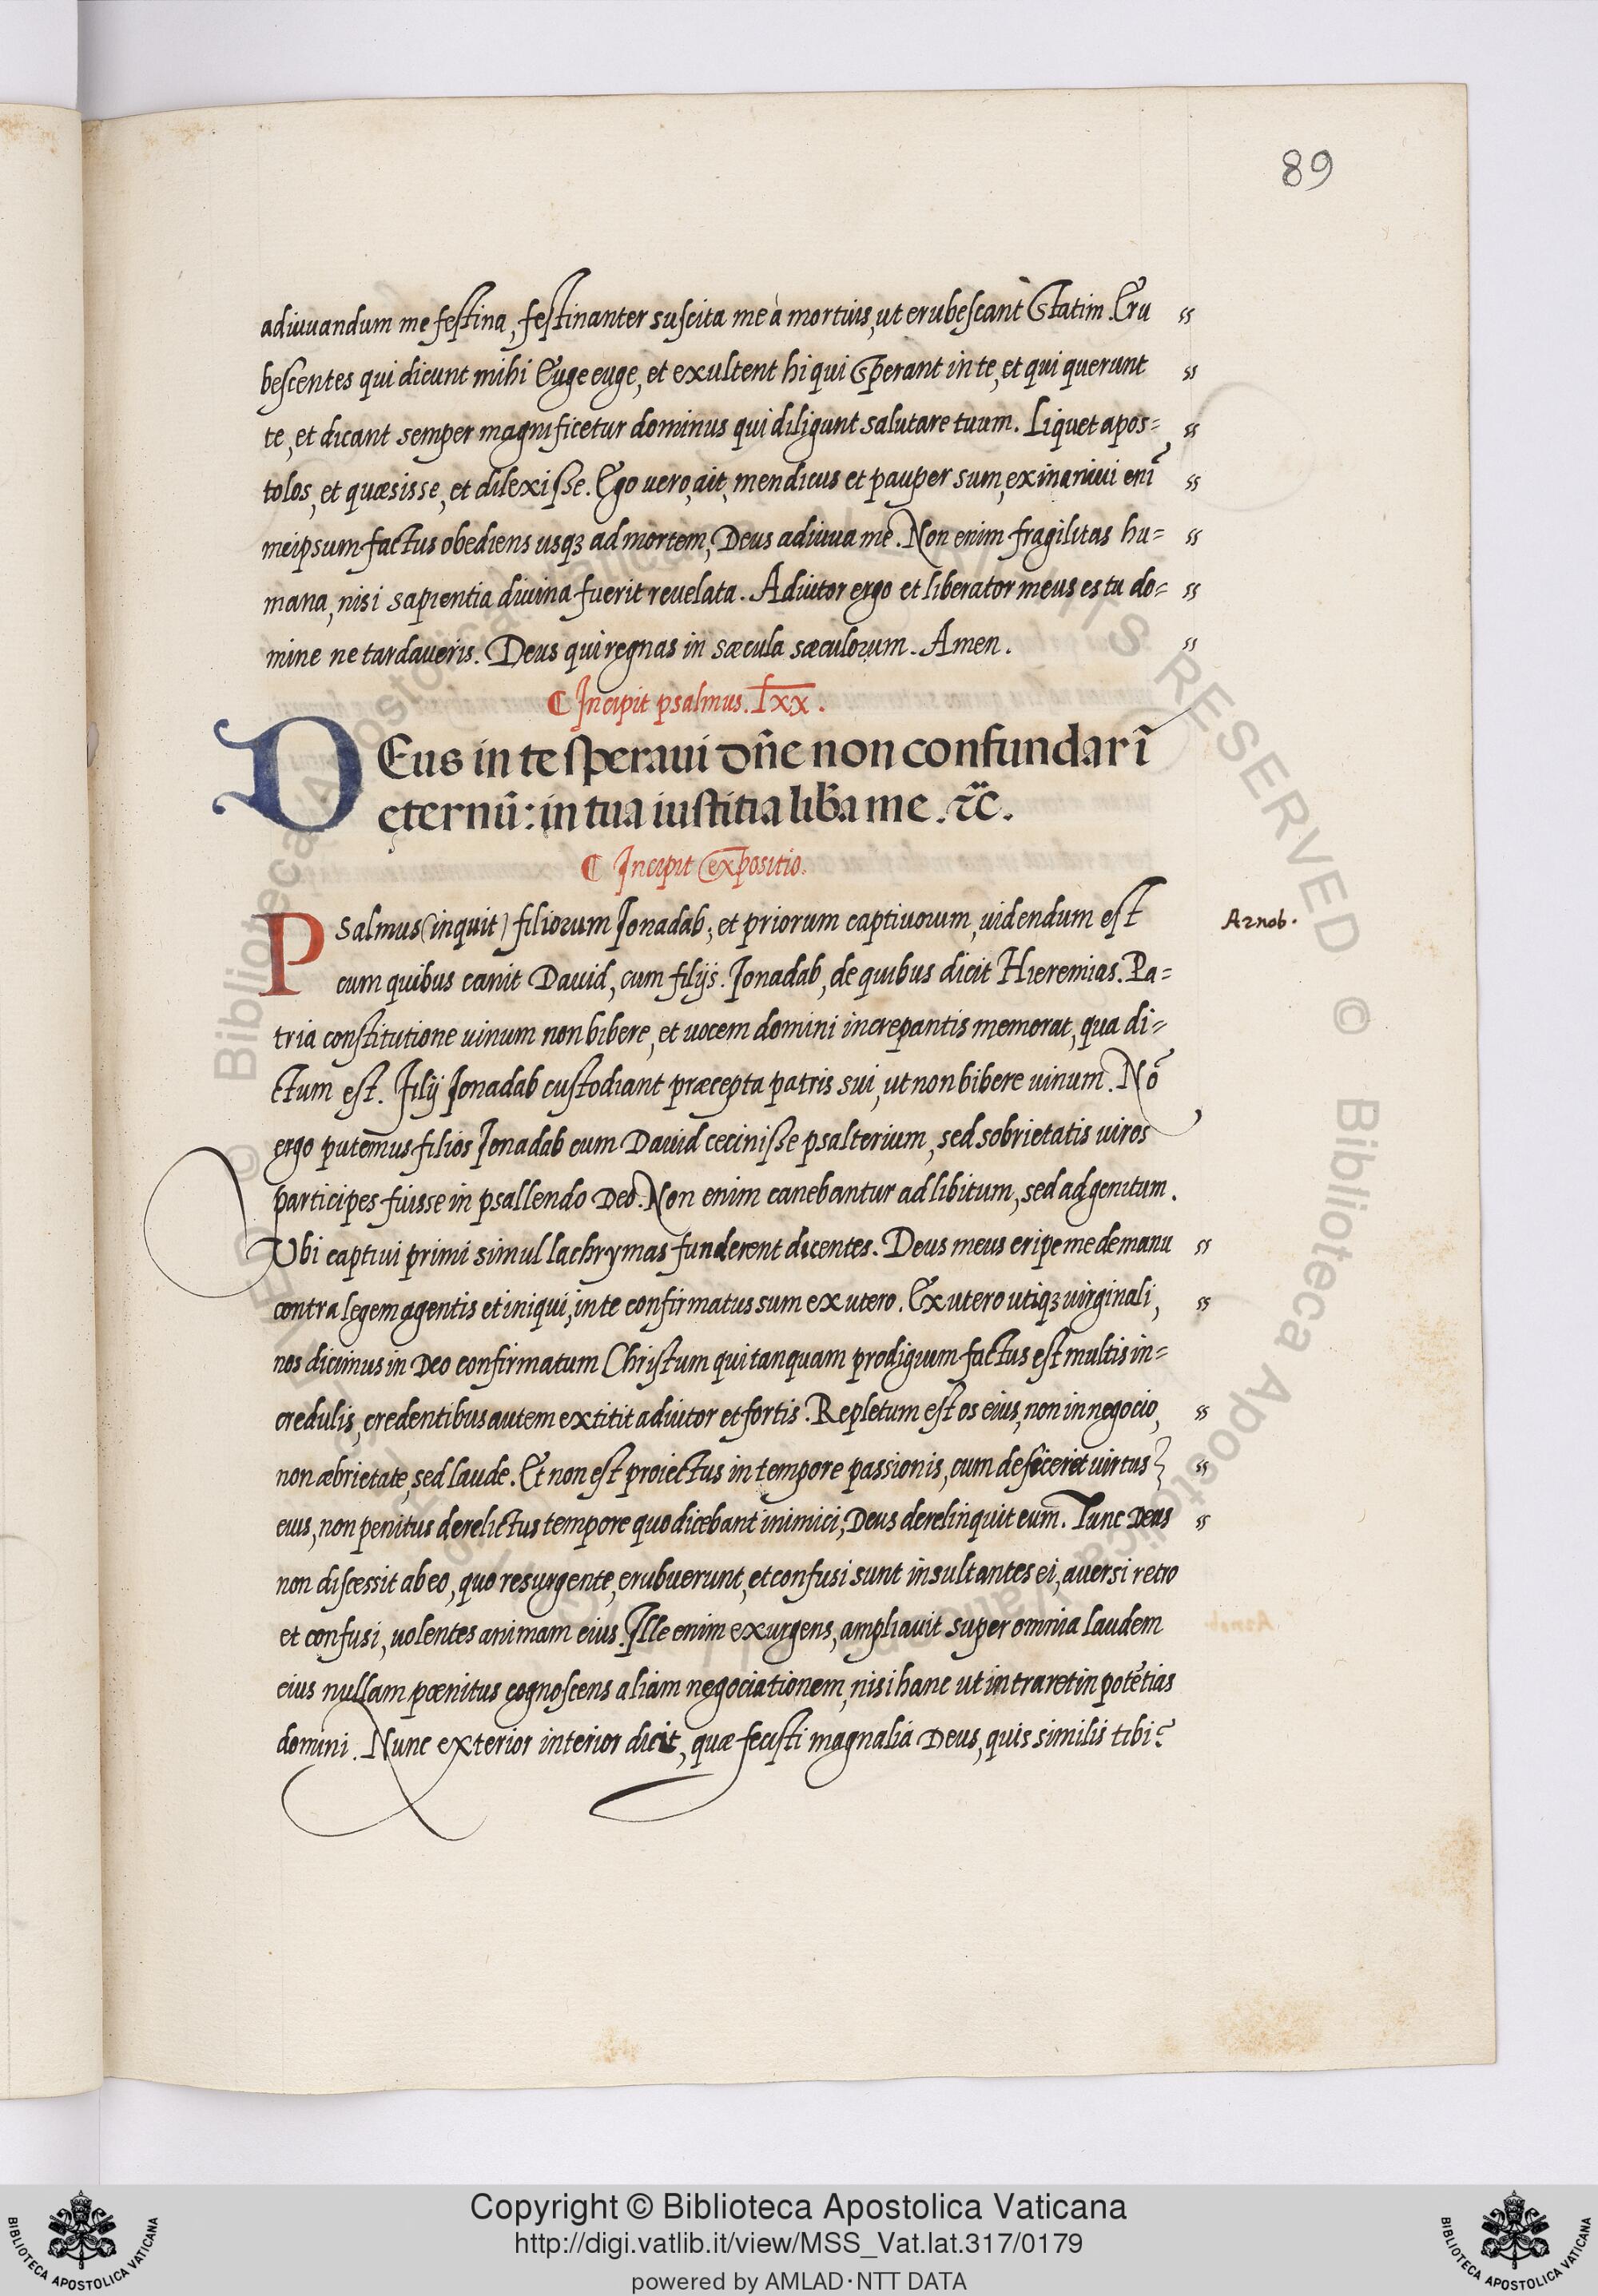 89
adiuuandum me festina, festinanter suscita me à mortuis, ut erubescant Statim. Eru ss
bescentes qui dicunt mihi Euge euge, et exultent hi qui Sperant in te, et qui querunt ss
te, et dicant semper magnificetur dominus qui diligunt salutare tuum. Liquet apos= ss
tolos, et quæsisse, et dilexisse. Ego uero, ait, mendicus et pauper sum, exinaniui eni͂ ss
meipsum factus obediens usqꝫ ad mortem, Deus adiuua me. Non enim fragilitas hu= ss
mana, nisi sapientia diuina fuerit reuelata. Adiutor ergo et liberator meus es tu do= ss
mine ne tardaueris. Deus qui regnas in sæcula sæculorum. Amen. ss
¶ Incipit psalmus. lxx.
DEus in te speraui dñe non confundar ĩ
ęternũ: in tua iustitia lib̃a me. ⁊c̃.
¶ Incipit expositio.
Psalmus (inquit) filiorum Ionadab, et priorum captiuorum, uidendum est Arnob.
cum quibus canit Dauid, cum filijs. Ionadab, de quibus dicit Hieremias. Pa=
tria constitutione uinum non bibere, et uocem domini increpantis memorat, qua di=
ctum est. Filij Ionadab custodiant præcepta patris sui, ut non bibere uinum. Nõ
ergo putemus filios Ionadab cum Dauid cecinisse psalterium, sed sobrietatis uiros
participes fuisse in psallendo Deo. Non enim canebantur ad libitum, sed ad genitum.
Vbi captiui primi simul lachrymas funderent dicentes. Deus meus eripe me de manu ss
contra legem agentis et iniqui, in te confirmatus sum ex utero. Ex utero utiqꝫ uirginali, ss
nos dicimus in Deo confirmatum Christum qui tanquam prodigium factus est multis in=
credulis, credentibus autem extitit adiutor et fortis. Repletum est os eius, non in negocio, ss
non æbrietate, sed laude. Et non est proiectus in tempore passionis, cum deficeret uirtus ss
eius, non penitus derelictus tempore quo dicebant inimici, Deus derelinquit eum. Tunc Deus ss
non discessit ab eo, quo resurgente, erubuerunt, et confusi sunt insultantes ei, auersi retro
et confusi, uolentes animam eius. Ille enim exurgens, ampliauit super omnia laudem
eius nullam pœnitus cognoscens aliam negociationem, nisi hanc ut intraret in potẽtias
domini. Nunc exterior interior dicit, quæ fecisti magnalia Deus, quis similis tibi?
Copyright © Biblioteca Apostolica Vaticana
http://digi.vatlib.it/view/MSS_Vat.lat.317/0179
powered by AMLAD·NTT DATA
BIBLIOTECA APOSTOLICA VATICANA
BIBLIOTECA APOSTOLICA VATICANA